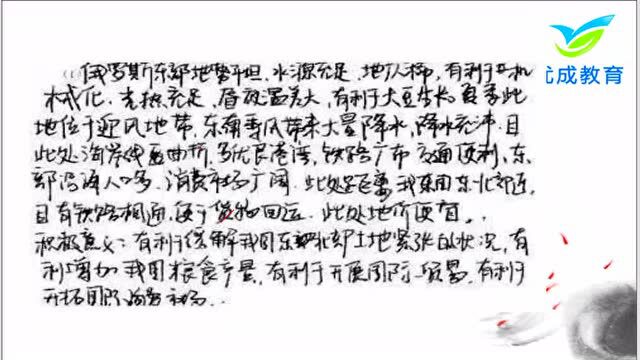 优成教育
俄罗斯东部地势平坦、水源充足、地广人稀，有利于机
械化．光热充足、昼夜温差大，有利于大豆生长夏季此
地位于迎风地带，东南季风带来大量降水，降水充沛．且
此处海岸线曲折，多优良港湾，铁路广布交通便利，东
部沿海人口多．消费市场广阔．此处距离我国东北部近，
且有铁路相通，便于货物回运．此处地价便宜．
积极意义：有利于缓解我国东北部土地紧张的状况，有
利增加我国粮食产量，有利于开展国际贸易，有利于
开拓国际市场．